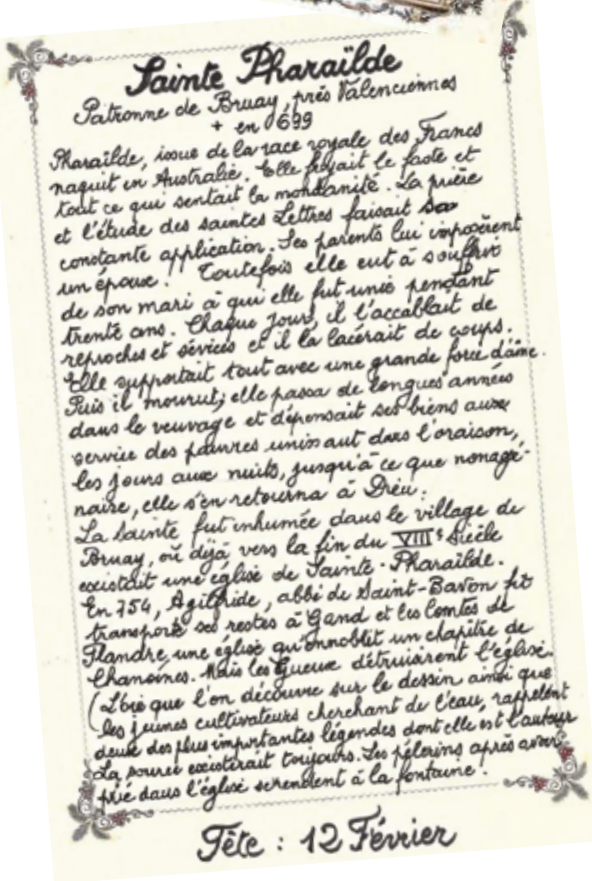 Sainte Pharaïlde
Patronne de Bruay, près Valenciennes
+ en 699
Pharaïlde, issue de la race royale des Francs
naquit en Australie. Elle fuyait le faste et
tout ce qui sentait la mondanité. La prière
et l'étude des saintes Lettres faisait sa
constante application. Ses parents lui imposèrent
un époux. Toutefois elle eut à souffrir
de son mari à qui elle fut unie pendant
trente ans. Chaque jour, il l'accablait de
reproches et sévices et il la lacérait de coups.
Elle supportait tout avec une grande force d'âme.
Puis il mourut; elle passa de longues années
dans le veuvage et dépensait ses biens aux
service des pauvres unissant dans l'oraison,
les jours aux nuits, jusqu'à ce que nonagé-
naire, elle s'en retourna à Dieu:
La Sainte fut inhumée dans le village de
Bruay, où déjà vers la fin du VIIIe Siècle
existait une église de Sainte-Pharaïlde.
En 754, Agilfride, abbé de Saint-Bavon fit
transporté ses restes à Gand et les Comtes de
Flandre, une église qu'ennoblit un chapitre de
Chanoines. Mais les Gueux détruisirent l'église.
(L'oie que l'on découvre sur le dessin ainsi que
les jeunes cultivateurs cherchant de l'eau, rappellent
deux des plus importantes légendes dont elle est l'auteur
La source existerait toujours. Les pélerins après avoir
prié dans l'église se rendent à la fontaine.
Fête : 12 Février